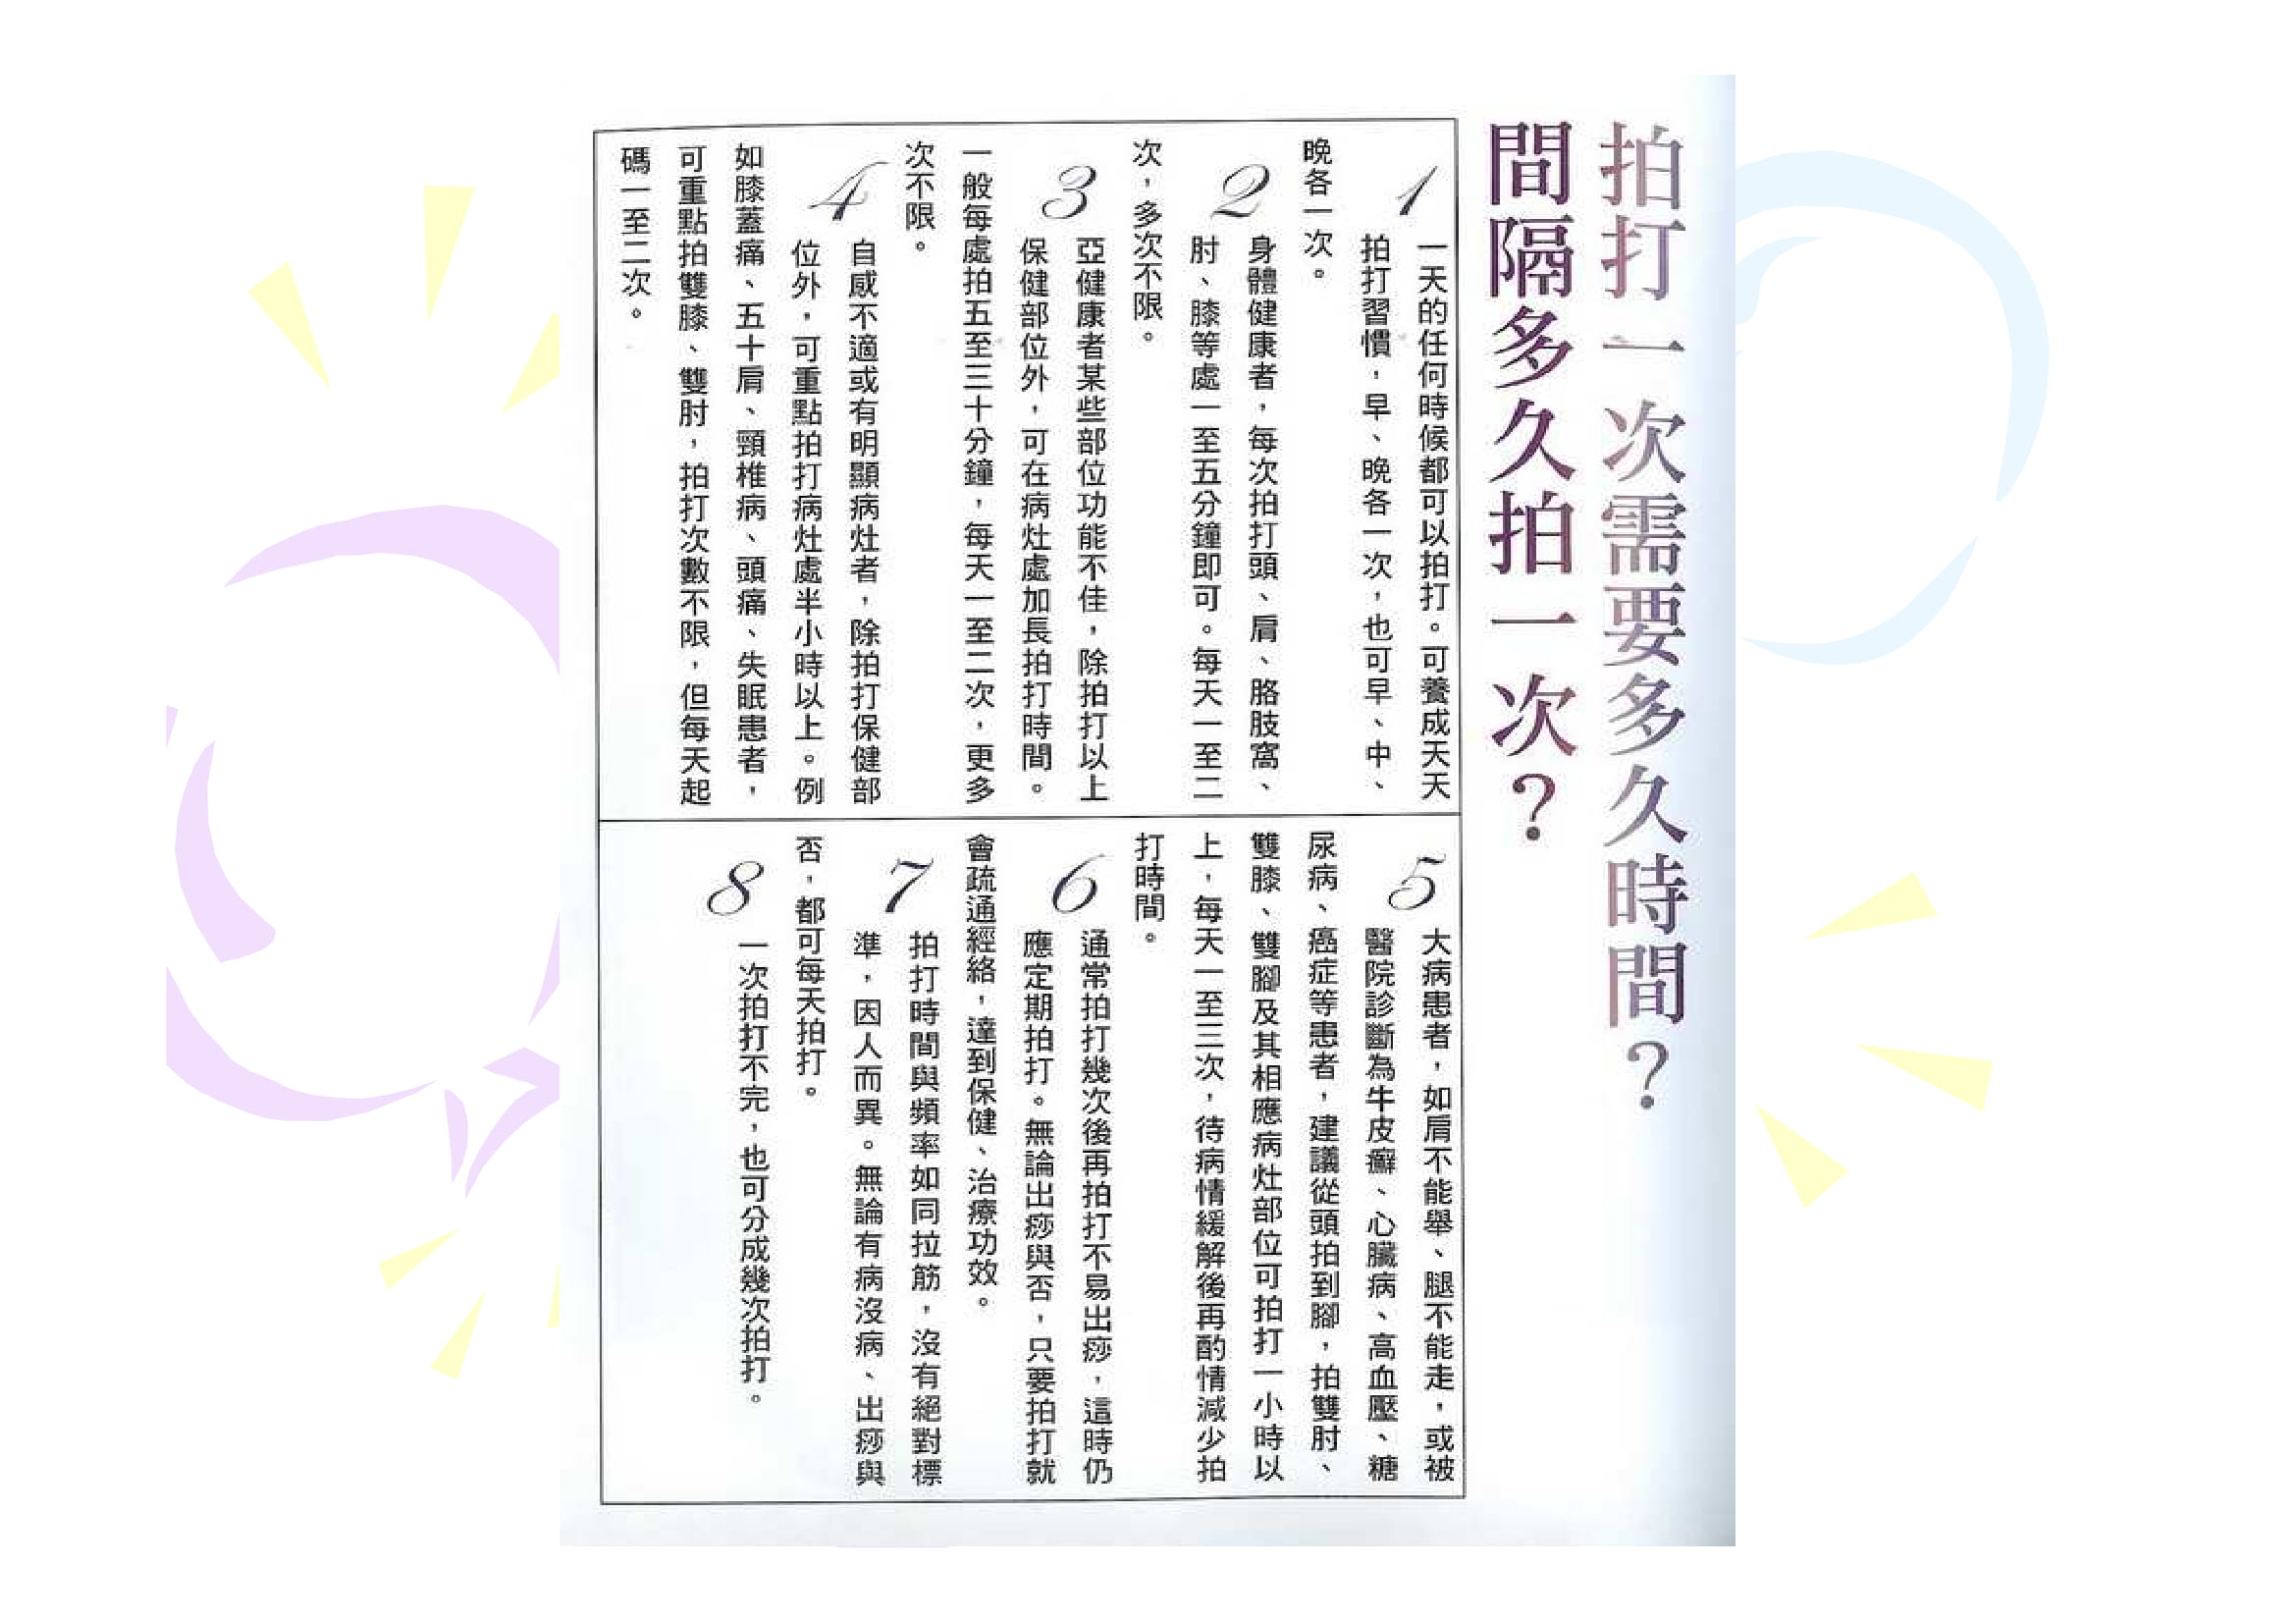 拍打一次需要多久時間？
間隔多久拍一次？
1
一天的任何時候都可以拍打。可養成天天
拍打習慣，早、晚各一次，也可早、中、
晚各一次。
2
身體健康者，每次拍打頭、肩、胳肢窩、
肘、膝等處一至五分鐘即可。每天一至二
次，多次不限。
3
亞健康者某些部位功能不佳，除拍打以上
保健部位外，可在病灶處加長拍打時間。
一般每處拍五至三十分鐘，每天一至二次，更多
次不限。
4
自感不適或有明顯病灶者，除拍打保健部
位外，可重點拍打病灶處半小時以上。例
如膝蓋痛、五十肩、頸椎病、頭痛、失眠患者，
可重點拍雙膝、雙肘，拍打次數不限，但每天起
碼一至二次。
5
大病患者，如肩不能舉、腿不能走，或被
醫院診斷為牛皮癬、心臟病、高血壓、糖
尿病、癌症等患者，建議從頭拍到腳，拍雙肘、
雙膝、雙腳及其相應病灶部位可拍打一小時以
上，每天一至三次，待病情緩解後再酌情減少拍
打時間。
6
通常拍打幾次後再拍打不易出痧，這時仍
應定期拍打。無論出痧與否，只要拍打就
會疏通經絡，達到保健、治療功效。
7
拍打時間與頻率如同拉筋，沒有絕對標
準，因人而異。無論有病沒病、出痧與
否，都可每天拍打。
8
一次拍打不完，也可分成幾次拍打。